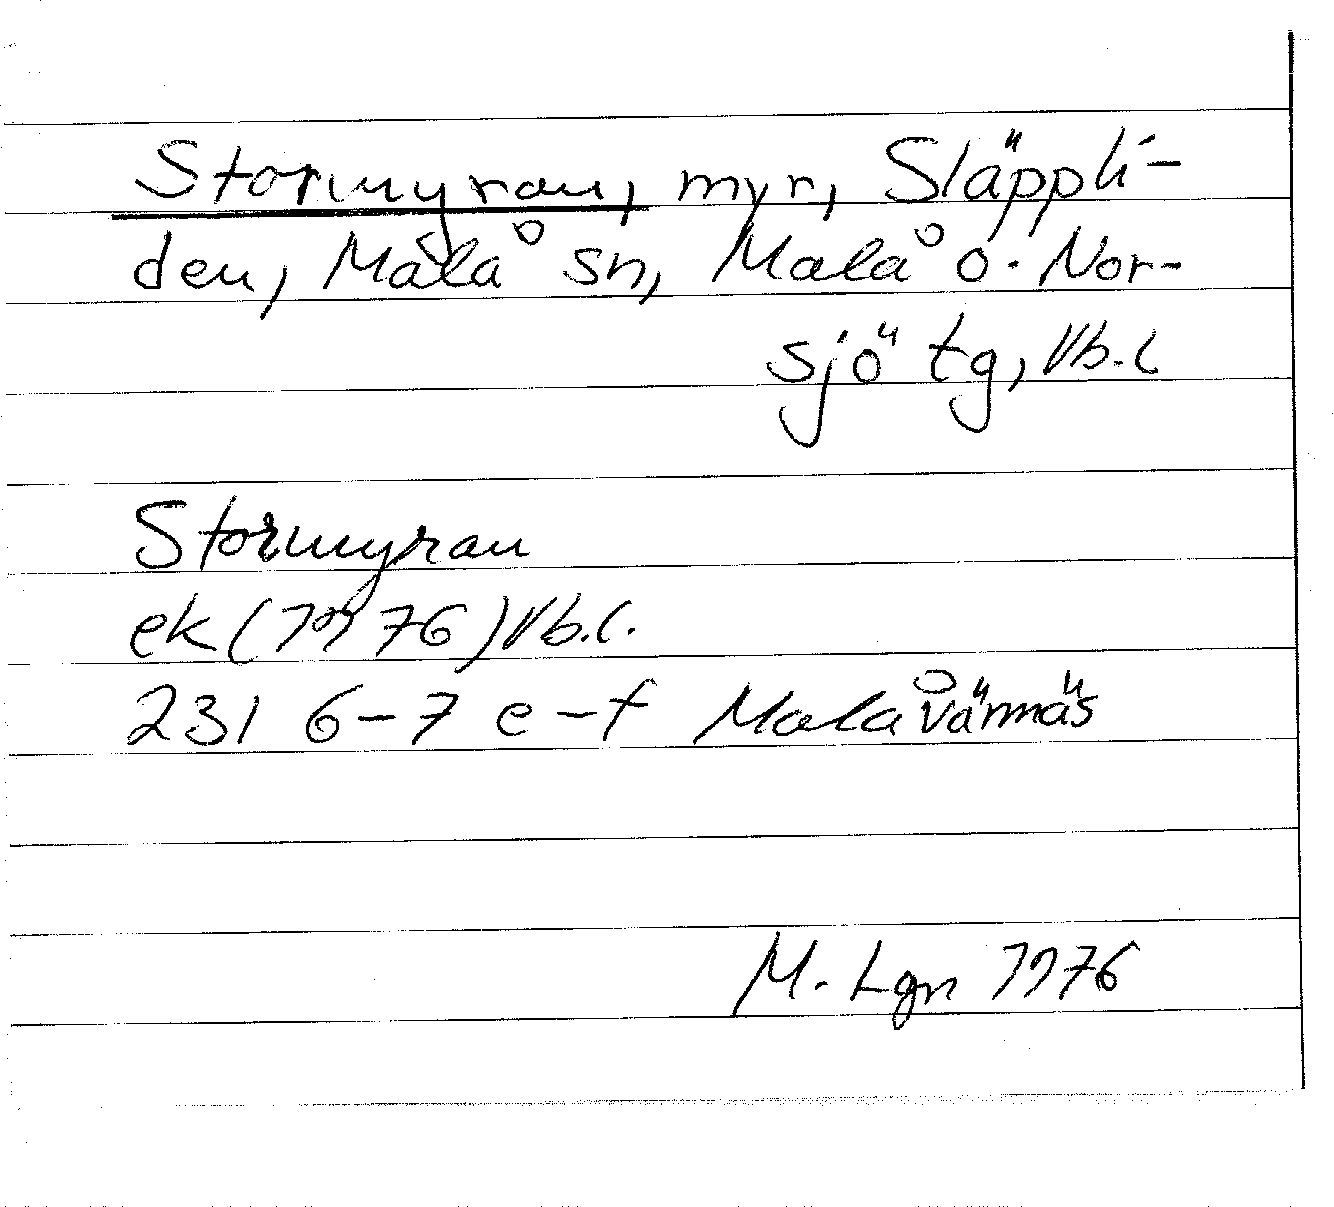 Stormyran, myr, Släppli-
den, Malå sn, Malå o. Nor-
sjö tg, Vb.l
Stormyran
ek (1976) Vb.l.
23I 6-7 e-f Malåvännäs
M. Lgn 1976